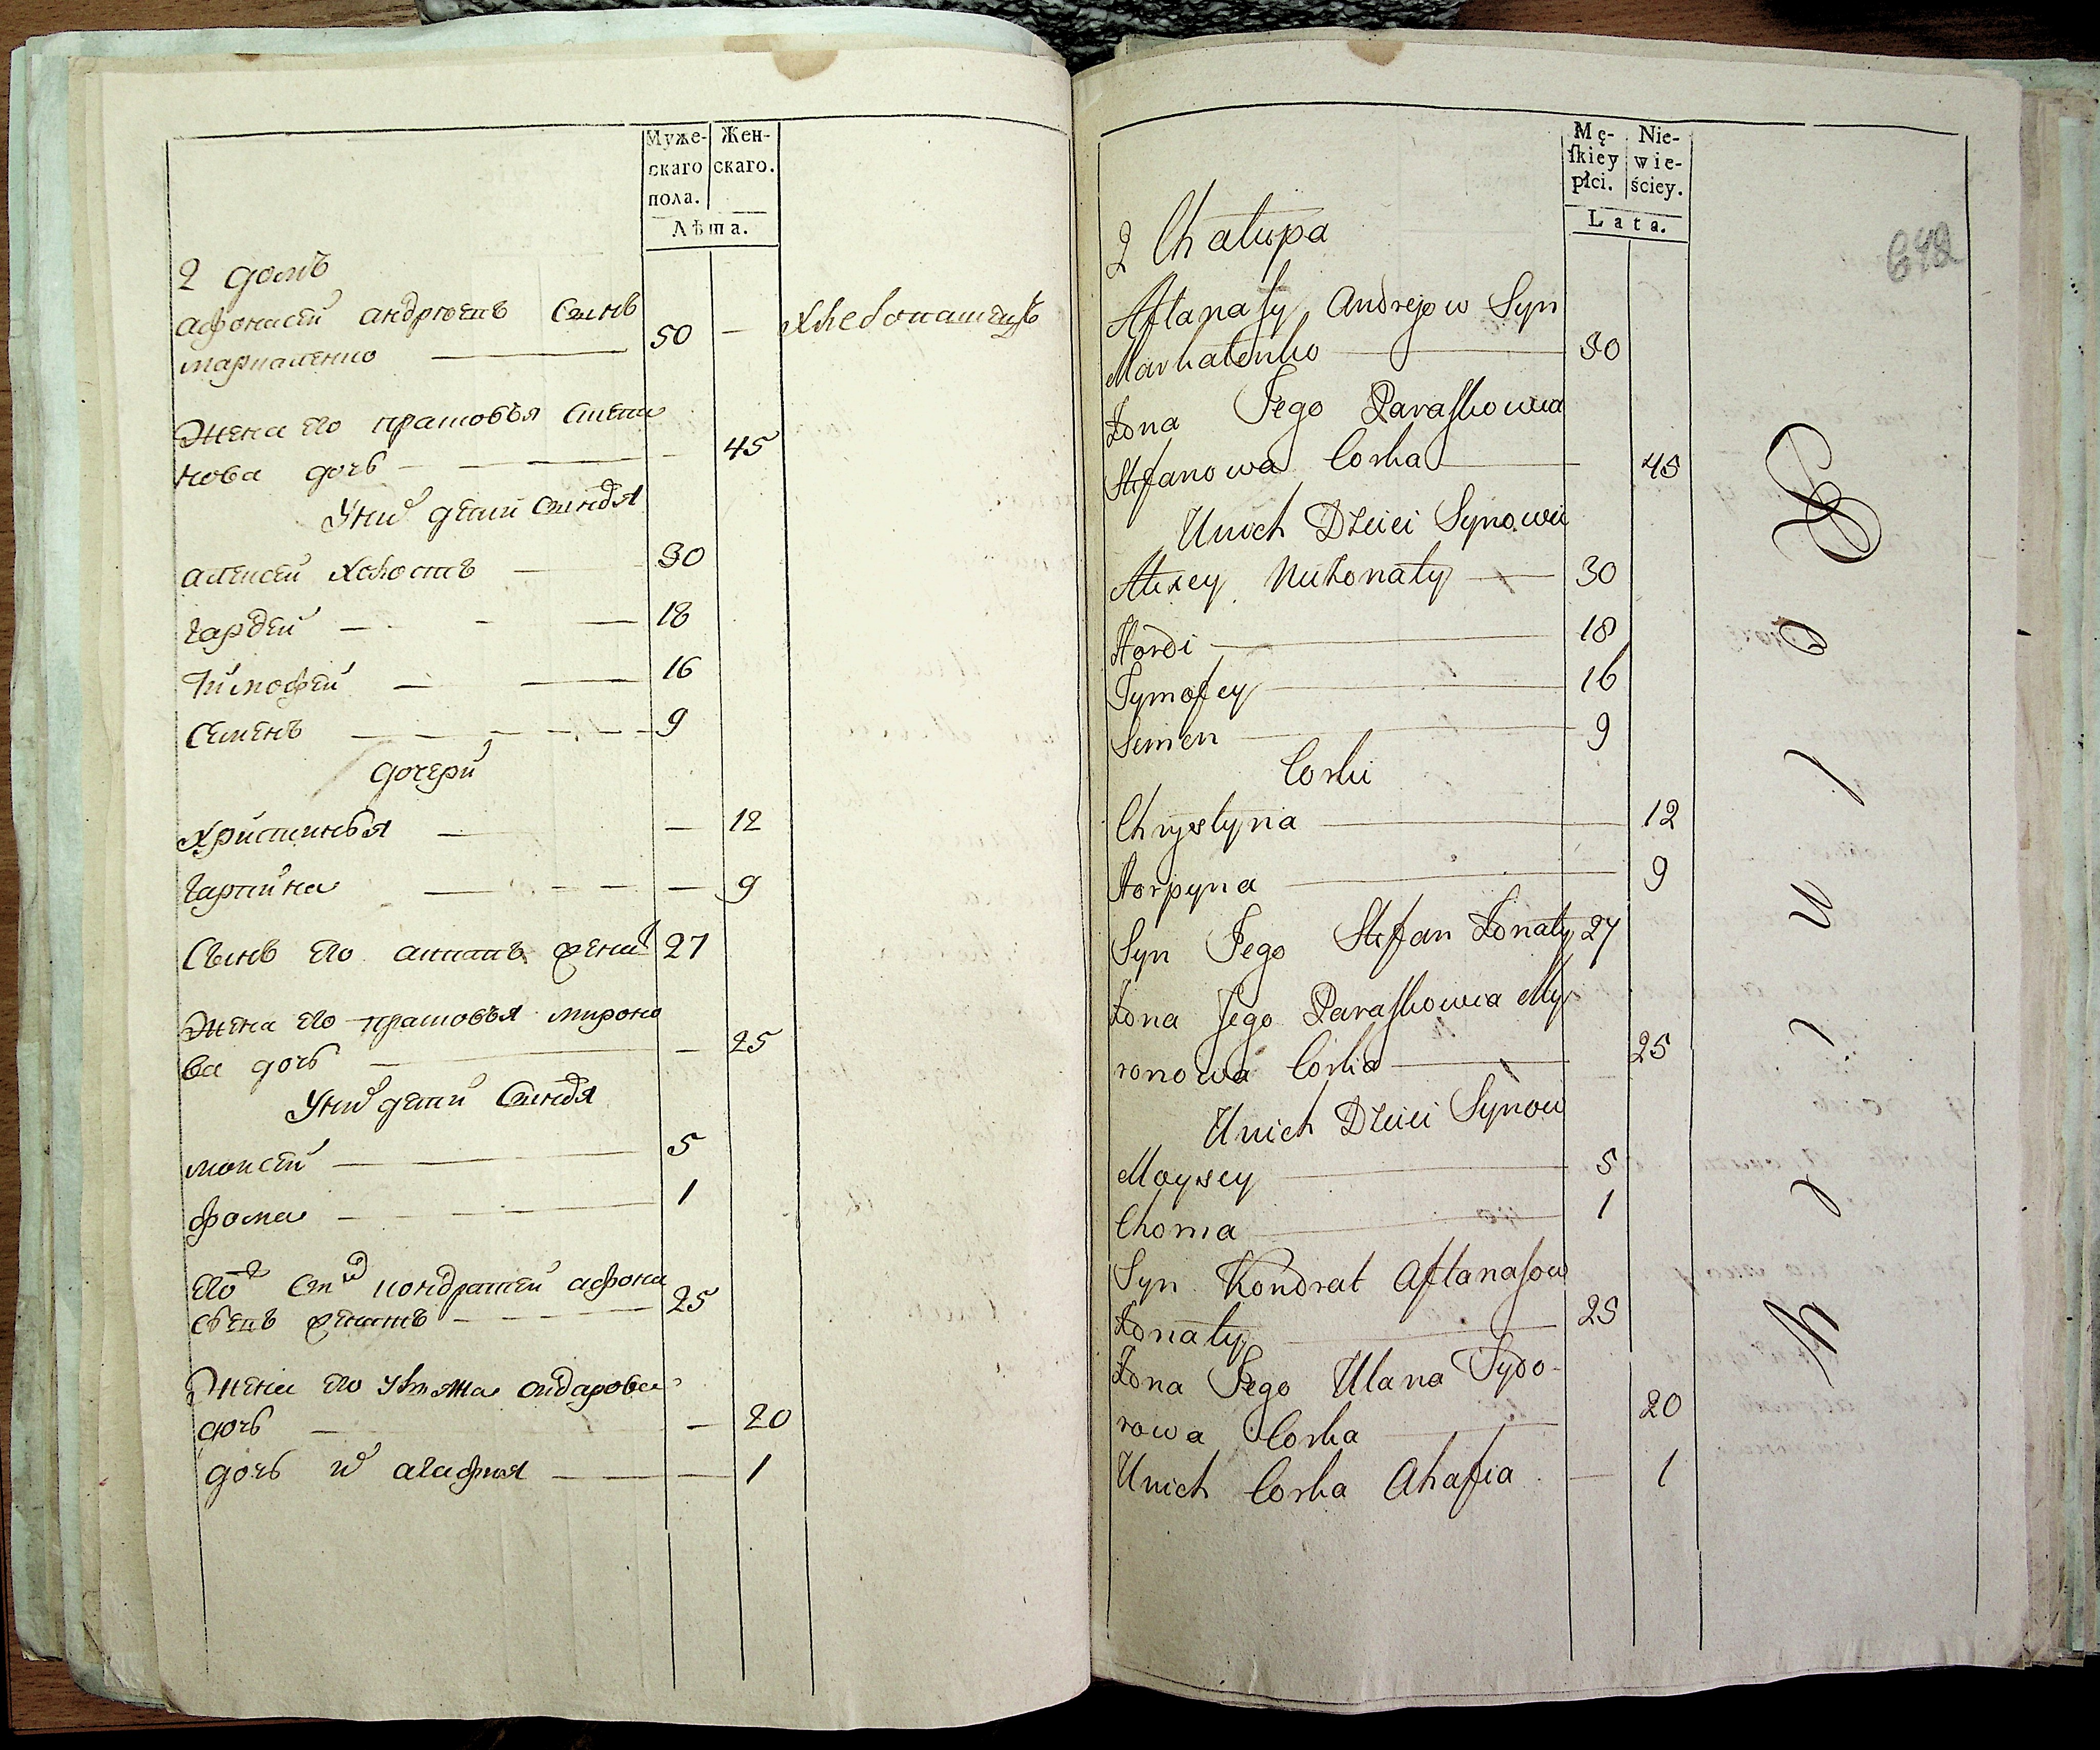 Муже-
скаго
пола.
Жен-
скаго.
Лѣта.
2 домъ
Афонасей андрюевъ Сынъ
маркаленко 50 — хлебопашецъ
Жена его прасковья Степа
нова дочь 45
У них дети Сыновя
алексей холостъ 30
гардей 18
Тимофей 16
Семенъ 9
дочери
христинья 12
гарпина 9
Сынъ его женат 27
Жена его прасковья мироно
ва дочь 25
У них дети Сыновя
моисей 5
фома 1
его кондратей афона
сьевъ женатъ 25
Жена его сидорова
дочь 20
дочь их агафия 1
Mę-
ſkiey
płci.
Nie-
wie-
ściey.
Lata.
642
2 Chałupa
Aftanaſy Andrejow Syn
Markalenko 50
Żona Jego Paraſkowia
Stefanowa Corka 45
Unich Dzieci Synowie
Alexey Nieżonaty 30
Hordi 18
Tymofey 16
Semen 9
Corki
Chrystyna 12
Horpyna 9
Syn Jego Stefan Żonaty 27
Żona Jego Paraſkowia My
ronowa Corka 25
Unich Dzieci Synow
Moysey 5
Choma 1
Syn Kondrat Aftanaſow
Żonaty 25
Żona Jego Ulana Sydo-
rowa Corka 20
Unich Corka Ahafia 1
Rolnik